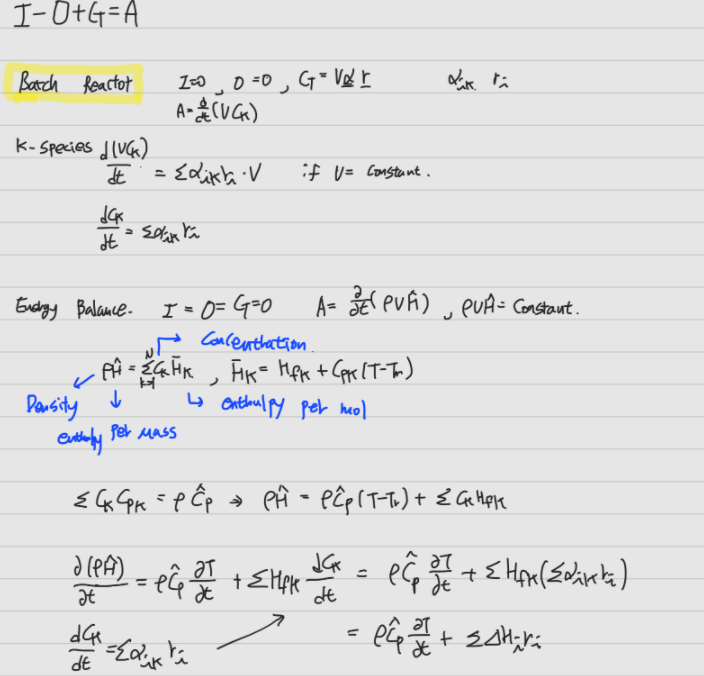 I-O+G=A
Batch Reactor I=0, O=0, G=Vα r α_ik r_i
A=d/dt(VC_K)
K-species d(VC_K)/dt = Σα_ik r_i·V if V= Constant.
dC_K/dt = Σα_ik r_i
Energy Balance. I=O=G=0 A=∂/∂t(ρVĤ), ρVĤ= Constant.
Concenthation.
ρĤ = Σ_{k=1}^{N} C_K H̄_K, H̄_K = H_fK + C_pK(T-Tr)
Density enthalpy per mol
enthalpy per mass
ΣC_K C_pK = ρĈp → ρĤ = ρĈp(T-Tr) + ΣC_K H_fK
∂(ρĤ)/∂t = ρĈp ∂T/∂t + ΣH_fK dC_K/dt = ρĈp ∂T/∂t + ΣH_fK(Σα_ik r_i)
dC_K/dt = Σα_ik r_i = ρĈp ∂T/∂t + ΣΔH_i r_i